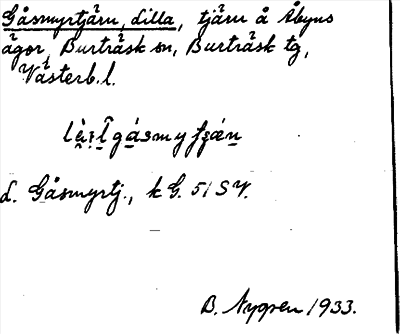 Gåsmyrtjärn, Lilla, tjärn å Åbyns
ägor, Burträsk sn, Burträsk tg,
Västerb. l.
gásmy
L. Gåsmyrtj., k G. 51 SV.
B. Nygren 1933.